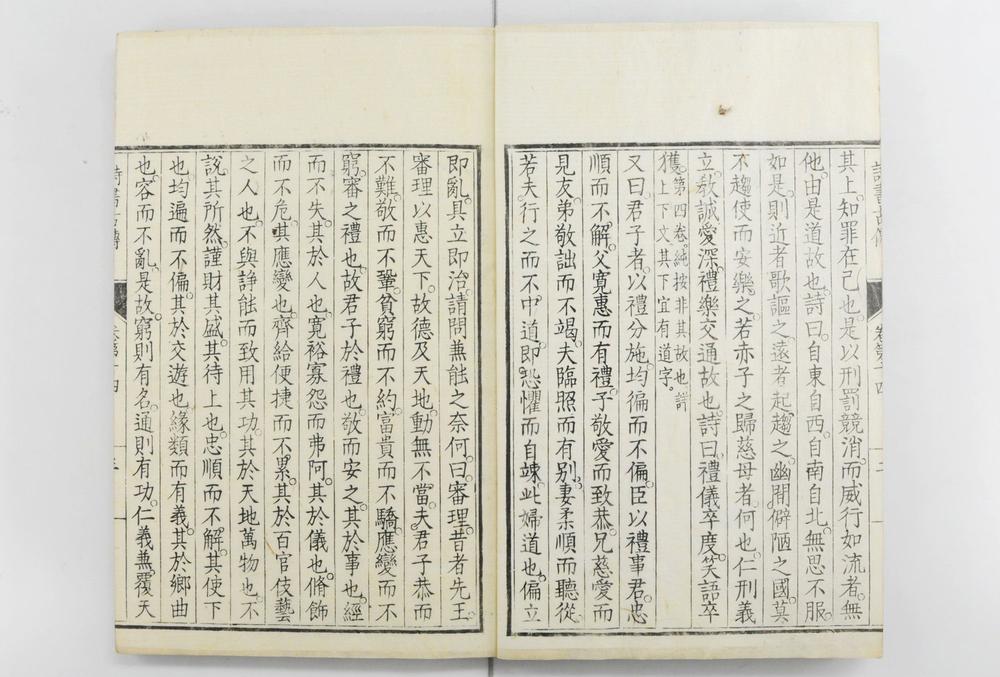 詩書古傳 卷第十四 三
其上。知罪在己也。是以刑罰競消。而威行如流者。無
他。由是道故也。詩曰。自東自西。自南自北。無思不服。
如是。則近者歌謳之。遠者起趨之。幽閒僻陋之國。莫
不趨使而安樂之。若赤子之歸慈母者。何也。仁刑義
立。教誠愛深。禮樂交通故也。詩曰。禮儀卒度。笑語卒
獲。第四卷。純按非其故也。詩
上下文其下宜有道字。
又曰。君子者。以禮分施。均徧而不偏。臣以禮事君。忠
順而不解。父寛惠而有禮。子敬愛而致恭。兄慈愛而
見友。弟敬詘而不竭。夫臨照而有别。妻柔順而聽從。
若夫行之而不中道。即恐懼而自竦。此婦道也。偏立
即亂。具立即治。請問兼能之奈何。曰。審理。昔者先王
審理以惠天下。故德及天地。動無不當。夫君子恭而
不難。敬而不鞏。貧窮而不約。富貴而不驕。應變而不
窮。審之禮也。故君子於禮也。敬而安之。其於事也。經
而不失。其於人也。寛裕寡怨而弗阿。其於儀也。脩飾
而不危。其應變也。齊給便捷而不累。其於百官伎藝
之人也。不與諍能而致用其功。其於天地萬物也。不
說其所然。謹財其盛。其待上也。忠順而不解。其使下
也。均遍而不偏。其於交遊也。緣類而有義。其於鄉曲
也。容而不亂。是故窮則有名。通則有功。仁義兼覆天
詩書古傳 卷第十四 三